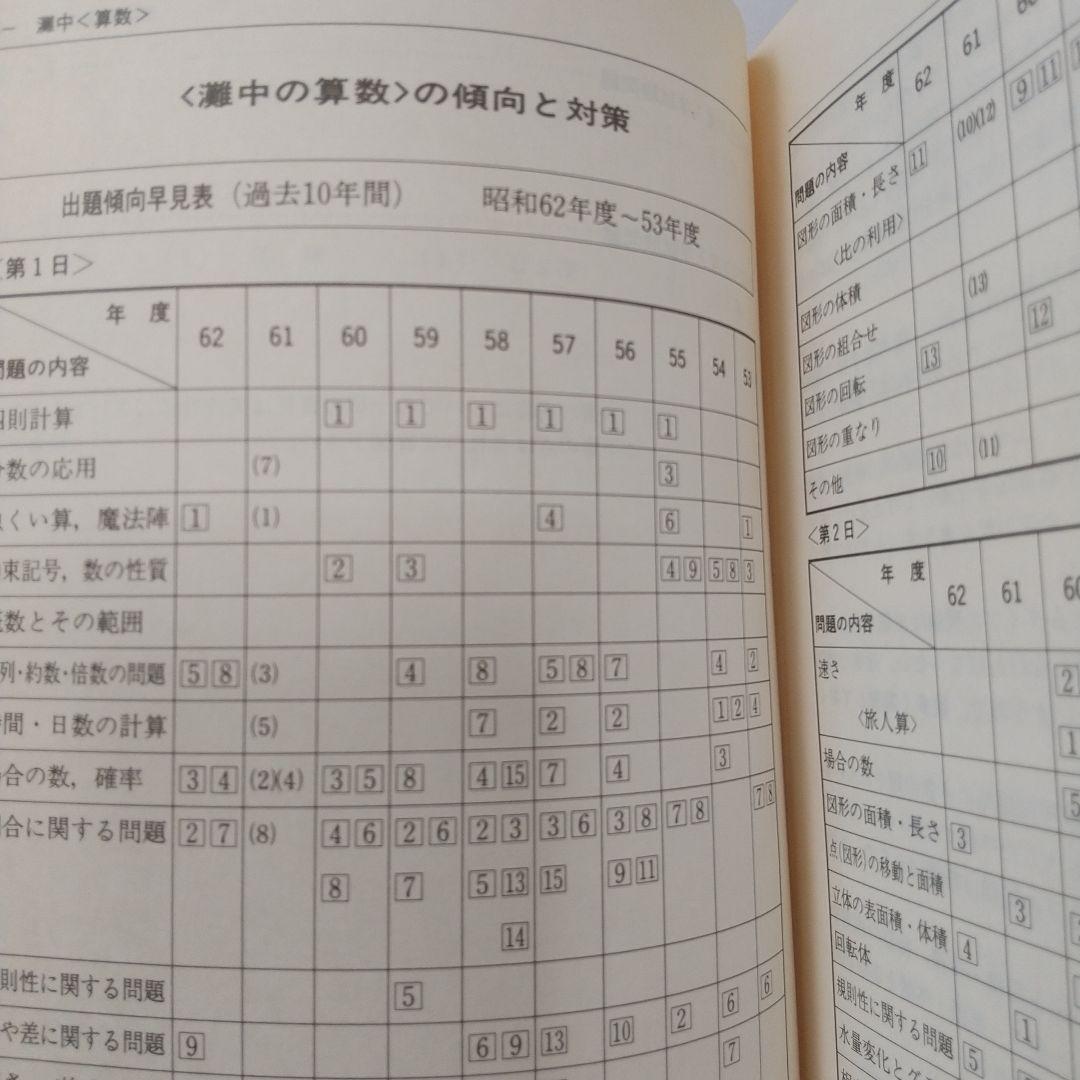 灘中<算数>
<灘中の算数>の傾向と対策
出題傾向早見表（過去10年間） 昭和62年度～53年度
<第1日>
年 度 62 61 60 59 58 57 56 55 54 53
問題の内容
四則計算 1 1 1 1 1 1
分数の応用 (7) 3
虫くい算，魔法陣 1 (1) 4 6 1
約束記号，数の性質 2 3 4 9 5 8 3
概数とその範囲
数列・約数・倍数の問題 5 8 (3) 4 8 5 8 7 4 2
時間・日数の計算 (5) 7 2 2 1 2 4
場合の数，確率 3 4 (2)(4) 3 5 8 4 15 7 4 3
割合に関する問題 2 7 (8) 4 6 2 6 2 3 3 6 3 8 7 8 7 8
8 7 5 13 15 9 11
14
規則性に関する問題 5 6
や差に関する問題 9 6 9 13 10 2 6
7
年 度 62 61
問題の内容
図形の面積・長さ 11 (10)(12) 9 11
<比の利用>
図形の体積 (13)
図形の組合せ 12
図形の回転 13
図形の重なり
その他 10 (11)
<第2日>
年 度 62 61 60
問題の内容
速さ 2
<旅人算> 1
場合の数 5
図形の面積・長さ 3
点(図形)の移動と面積 3
立体の表面積・体積 4
回転体
規則性に関する問題 5 1
水量変化とグ